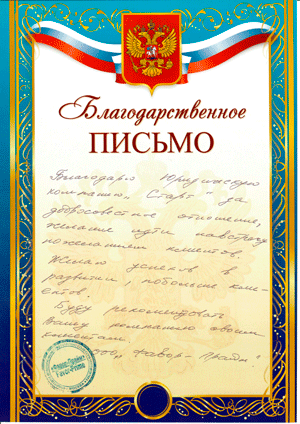 Благодарственное
ПИСЬМО
Благодарю Юридическую
компанию „Старт" за
добросовестное отношение,
желание идти навстречу
пожеланиям клиентов.
Желаю успехов в
развитии, побольше кли-
ентов.
Буду рекомендовать
Вашу компанию своим
клиентам.
ООО „Фавор-Прайм"